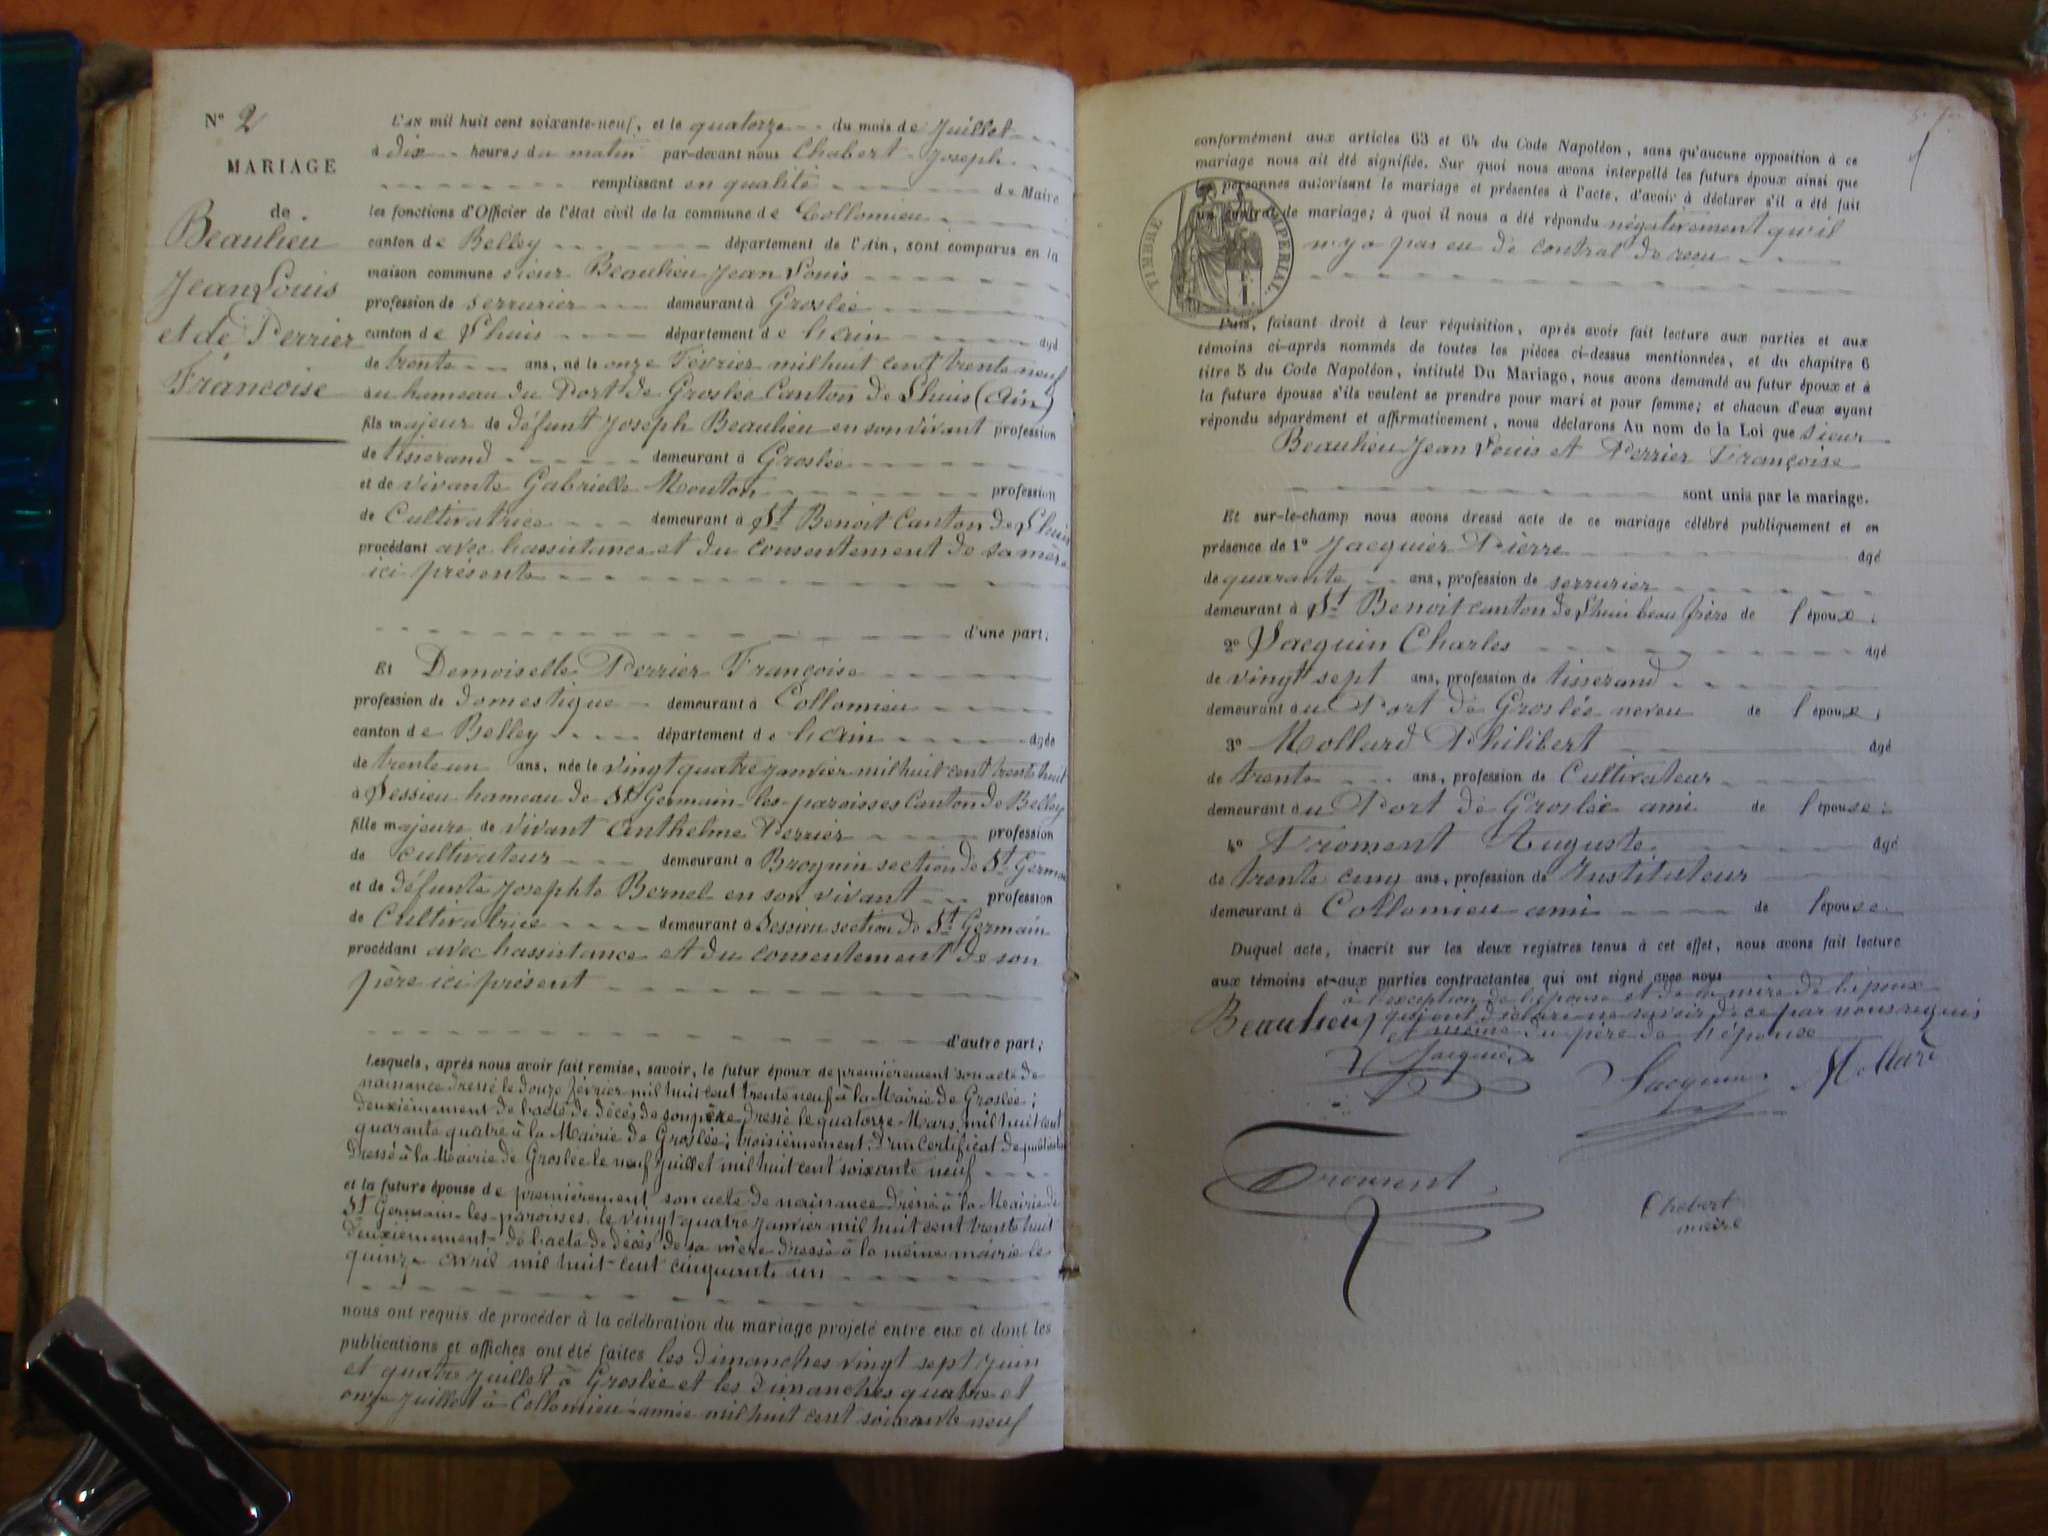 N° 2
MARIAGE
de
Beaulieu
Jean Louis
et de Perrier
Françoise
L'an mil huit cent soixante-neuf, et le quatorze du mois de Juillet
à dix heures du matin par-devant nous Chabert Joseph
remplissant en qualité de Maire
les fonctions d'Officier de l'état civil de la commune de Collomieu
canton de Belley département de l'Ain, sont comparus en la
maison commune sieur Beaulieu Jean Louis
profession de serrurier demeurant à Groslée
canton de Lhuis département de l'ain âgé
de trente ans, né le onze Février mil huit cent trente neuf
au hameau du Port de Groslée Canton de Lhuis (Ain)
fils majeur de défunt Joseph Beaulieu en son vivant profession
de tisserand demeurant à Groslée
et de vivante Gabrielle Mouton profession
de Cultivatrice demeurant à St Benoit Canton de Lhuis
procédant avec l'assistance et du consentement de sa mère
ici présente
d'une part;
Et Demoiselle Perrier Françoise
profession de domestique demeurant à Collomieu
canton de Belley département de l'ain âgée
de trente un ans, née le vingt quatre janvier mil huit cent trente huit
à Essieu hameau de St Germain-les-paroisses Canton de Belley
fille majeure de vivant Anthelme Perrier profession
de cultivateur demeurant à Brognin section de St Germain
et de défunte Josephte Bernel en son vivant profession
de Cultivatrice demeurant à Essieu section de St Germain
procédant avec l'assistance et du consentement de son
père ici présent
d'autre part;
Lesquels, après nous avoir fait remise, savoir, le futur époux de premièrement son acte de
naissance dressé le douze février mil huit cent trente neuf à la Mairie de Groslée;
deuxièmement de l'acte de décès de son père dressé le quatorze Mars mil huit cent
quarante quatre à la Mairie de Groslée; troisièmement d'un certificat de publication
dressé à la Mairie de Groslée le neuf Juillet mil huit cent soixante neuf
et la future épouse de premièrement son acte de naissance dressé à la Mairie de
St Germain-les-paroisses le vingt quatre Janvier mil huit cent trente huit
deuxièmement de l'acte de décès de sa mère dressé à la même mairie le
quinze avril mil huit cent cinquante un
nous ont requis de procéder à la célébration du mariage projeté entre eux et dont les
publications et affiches ont été faites les dimanches vingt sept Juin
et quatre Juillet à Groslée et les dimanches quatre et
onze Juillet à Collomieu année mil huit cent soixante neuf
conformément aux articles 63 et 64 du Code Napoléon, sans qu'aucune opposition à ce
mariage nous ait été signifiée. Sur quoi nous avons interpellé les futurs époux ainsi que
les personnes autorisant le mariage et présentes à l'acte, d'avoir à déclarer s'il a été fait
un contrat de mariage; à quoi il nous a été répondu négativement qu'il
n'y a pas eu de contrat de reçu
TIMBRE IMPERIAL
Puis, faisant droit à leur réquisition, après avoir fait lecture aux parties et aux
témoins ci-après nommés de toutes les pièces ci-dessus mentionnées, et du chapitre 6
titre 5 du Code Napoléon, intitulé Du Mariage, nous avons demandé au futur époux et à
la future épouse s'ils veulent se prendre pour mari et pour femme; et chacun d'eux ayant
répondu séparément et affirmativement, nous déclarons Au nom de la Loi que sieur
Beaulieu Jean Louis et Perrier Françoise
sont unis par le mariage.
Et sur-le-champ nous avons dressé acte de ce mariage célébré publiquement et en
présence de 1° Jacquier Pierre âgé
de quarante ans, profession de serrurier
demeurant à St Benoit canton de Lhuis beau frère de l'époux;
2° Jacquin Charles âgé
de vingt sept ans, profession de tisserand
demeurant au Port de Groslée neveu de l'époux;
3° Mollard Philibert âgé
de trente ans, profession de Cultivateur
demeurant au Port de Groslée ami de l'épouse;
4° Froment Auguste âgé
de trente cinq ans, profession de Instituteur
demeurant à Collomieu ami de l'épouse.
Duquel acte, inscrit sur les deux registres tenus à cet effet, nous avons fait lecture
aux témoins et aux parties contractantes qui ont signé avec nous
à l'exception de l'épouse et de la mère de l'époux
Beaulieu qui ont déclaré ne savoir de ce par nous requis
et même du père de l'épouse
Jacquier Jacquin Mollard
Froment
Chabert
maire